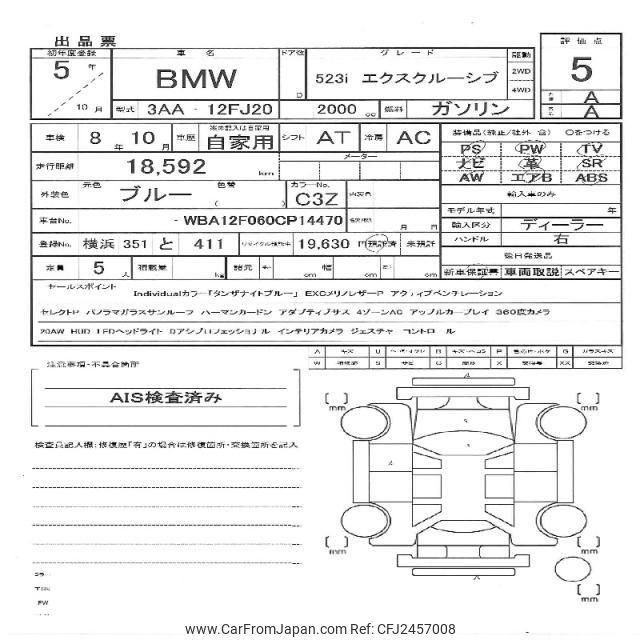 出品票
初年度登録 車名 ドア数 グレード 駆動 評価点
5年 BMW D 523i エクスクルーシブ 2WD 4WD 5
10月 型式 3AA - 12FJ20 2000 cc 燃料 ガソリン A A
車検 8年 10月 車歴 自家用 シフト AT 冷房 AC 装備品(純正/社外 含) ○をつける
走行距離 18,592 km メーター PS PW TV
ナビ 革 SR
外装色 元色 ブルー 色替 ( ) カラーNo. C3Z AW エアB ABS
輸入車のみ
車台No. - WBA12F060CP14470 月 日 モデル年式 年
輸入区分 ディーラー
登録No. 横浜 351 と 411 リサイクル預託金 19,630 円 預託済 未預託 ハンドル 右
後日発送品
定員 5人 積載量 kg 諸元 長 cm 幅 cm 高 cm 新車保証書 車両取説 スペアキー
セールスポイント
Individualカラー「タンザナイトブルー」 EXCメリノレザーP アクティブベンチレーション
セレクトP パノラマガラスサンルーフ ハーマンカードン アダプティブサス 4ゾーンAC アップルカープレイ 360度カメラ
20AW HUD LEDヘッドライト Dアシプロフェッショナル インテリアカメラ ジェスチャ コントロール
注意事項・不具合箇所
AIS検査済み
検査員記入欄:修復歴「有」の場合は修復箇所・交換箇所を記入
[ ] mm [ ] mm
A
S
1
2
[ ] mm [ ] mm
A
[ ] mm
www.CarFromJapan.com Ref: CFJ2457008